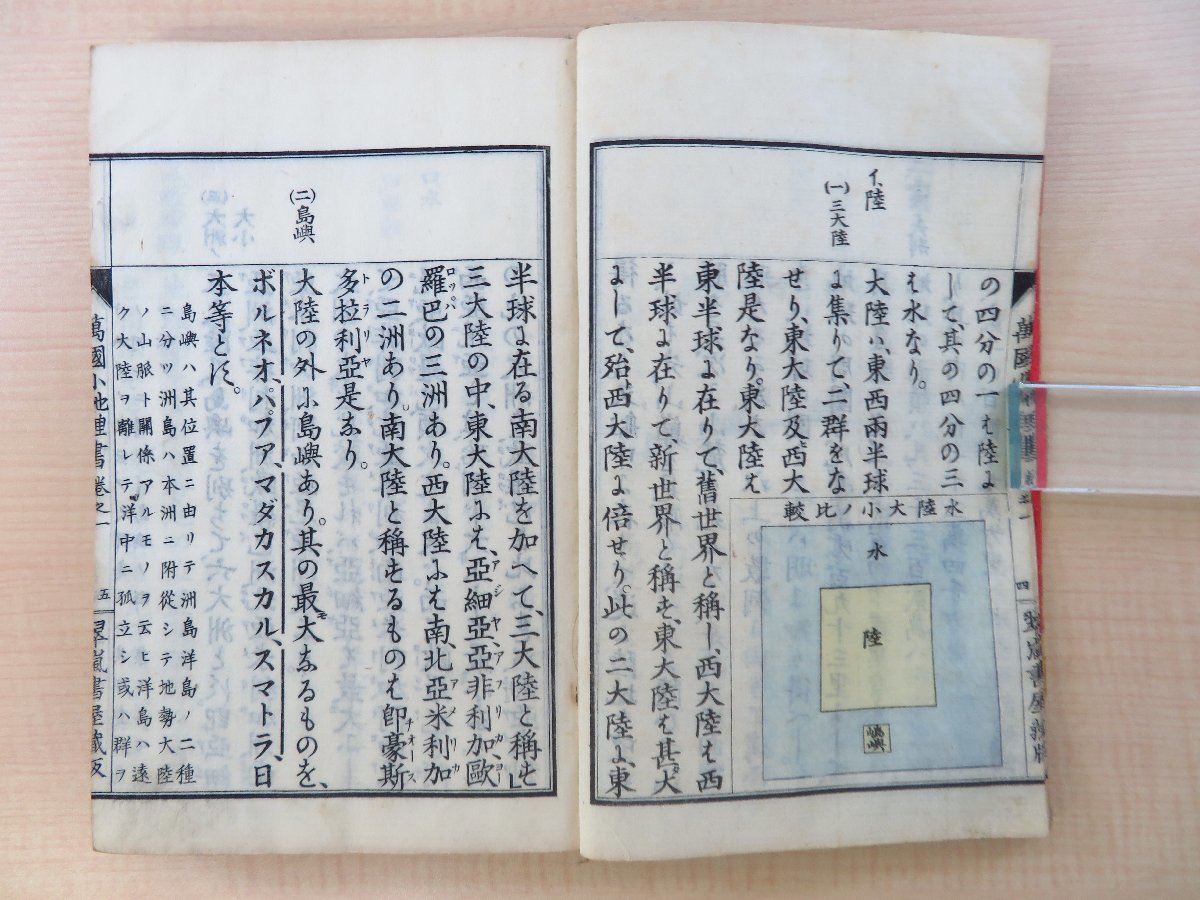 の四分の一は陸に
して、其の四分の三
は水なり。
イ、陸
(一)三大陸
大陸ハ、東西兩半球
に集りて、二群をな
せり、東大陸及、西大
陸是なり。東大陸は
東半球に在りて、舊世界と稱し、西大陸は西
半球に在りて、新世界と稱す、東大陸は甚大
にして、殆、西大陸に倍せり。此の二大陸に、東
水陸大小ノ比較
水
陸
島嶼
四
半球に在る南大陸を加へて、三大陸と稱す」
三大陸の中、東大陸には、亞細亞、亞非利加、歐
アジヤ、アフリカ、ヨー
羅巴の三洲あり。西大陸には、南、北亞米利加
ロッパ アメリカ
の二洲あり。南大陸と稱するものは、即豪斯
チオース
多拉利亞是なり。
トラリヤ
(二)島嶼
大陸の外に島嶼あり。其の最大なるものを、
ボルネオ、パプア、マダカスカル、スマトラ、日
本等とす。
島嶼ハ其位置ニ由リテ洲島洋島ノ二種
ニ分ツ洲島ハ本洲ニ附從シテ地勢大陸
ノ山脈ト關係アルモノヲ云ヒ洋島ハ遠
ク大陸ヲ離レテ洋中ニ孤立シ或ハ群ヲ
萬國小地理書 卷之一 五 翠嵐書屋藏版